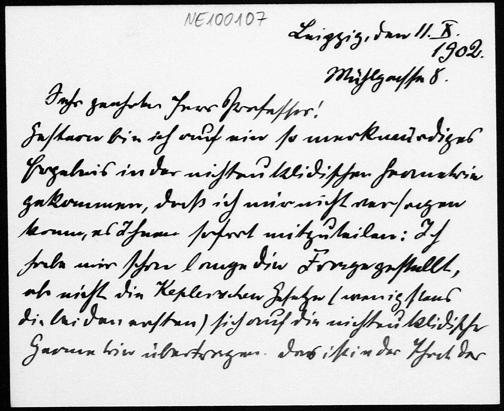 NE100107
Leipzig, den 11. X.
1902.
Mühlgasse 8.
Sehr geehrter Herr Professor!
Gestern bin ich auf ein so merkwürdiges
Ergebnis in der nichteuklidischen Geometrie
gekommen, daß ich mir nicht versagen
kann, es Ihnen sofort mitzuteilen: Ich
habe mir schon lange die Frage gestellt,
ob nicht die Keplerschen Gesetze (wenigstens
die beiden ersten) sich auf die nichteuklidische
Geometrie übertragen. Das ist in der That der